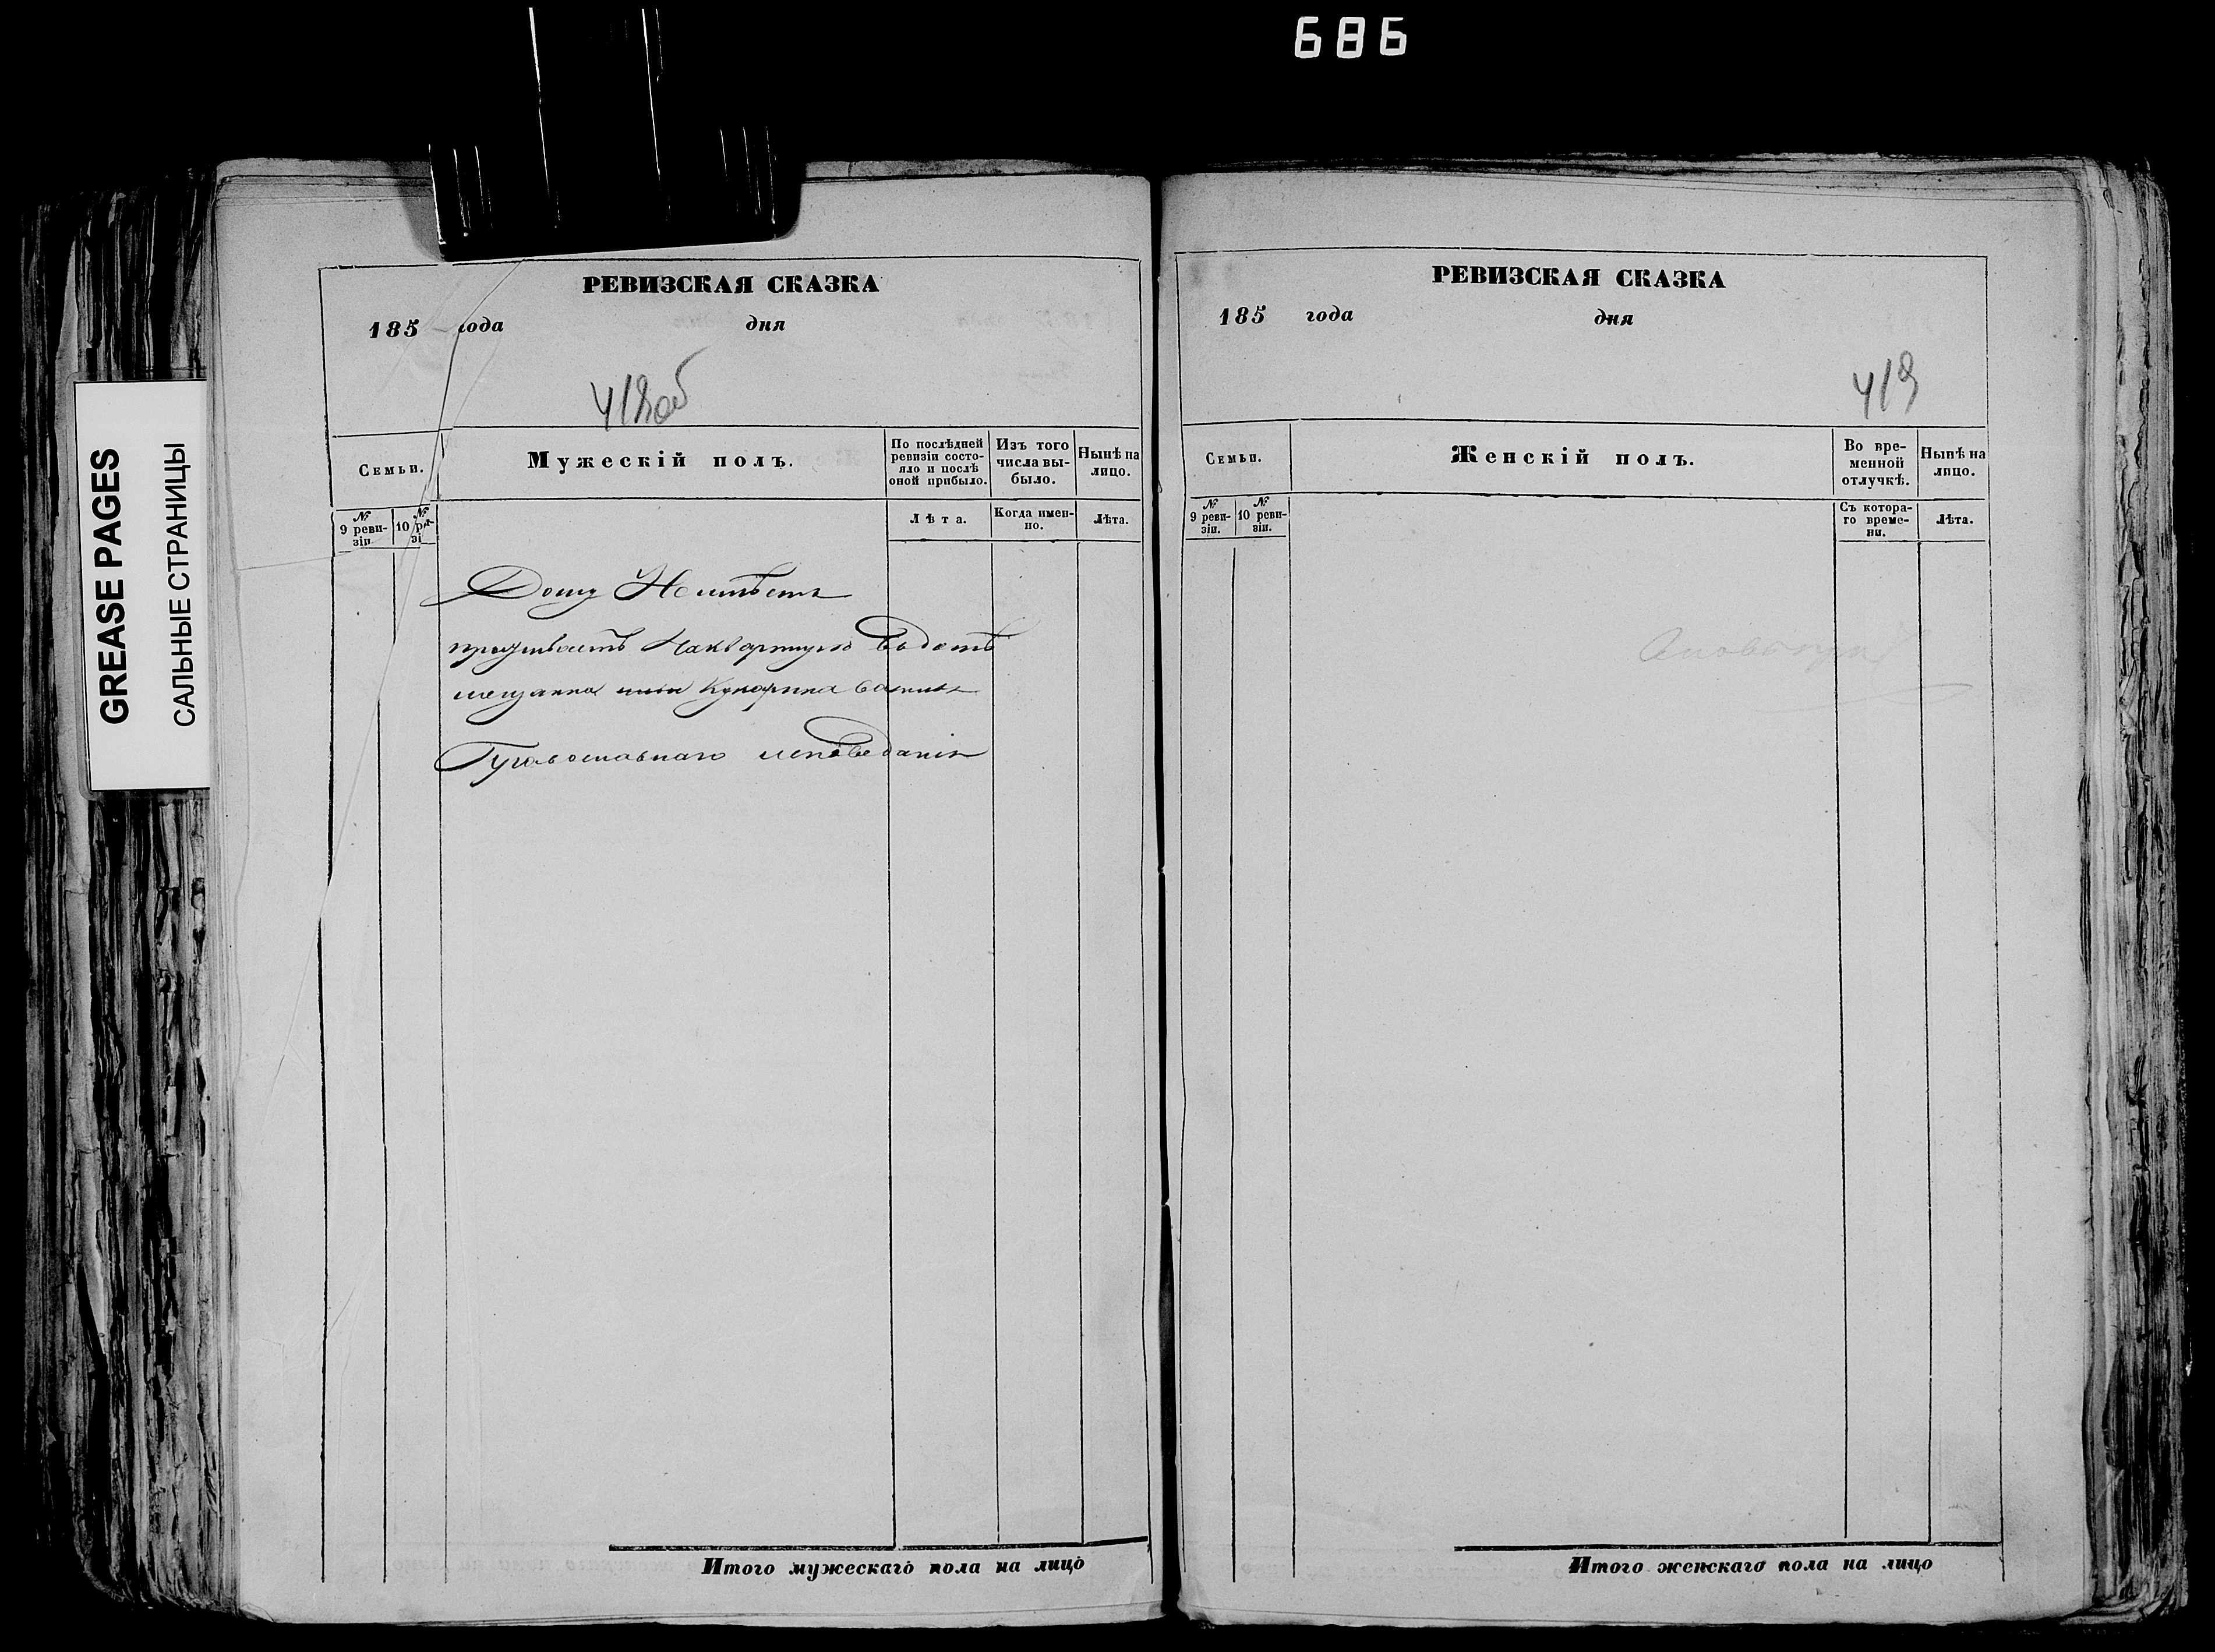 686
GREASE PAGES
САЛЬНЫЕ СТРАНИЦЫ
РЕВИЗСКАЯ СКАЗКА
185 года дня
418об
Семьи.
Мужескій полъ.
По послѣдней ревизіи состояло и послѣ оной прибыло.
Изъ того числа выбыло.
Нынѣ на лицо.
№ 9 ревизіи
№ 10 ревизі
Лѣта.
Когда именно.
Лѣта.
Дому Неимѣетъ
проживаетъ Наквартирѣ Вдомѣ
мещанина Кукарина
Православнаго исповеданія
Итого мужескаго пола на лицо
РЕВИЗСКАЯ СКАЗКА
185 года дня
419
Семьи.
Женскій полъ.
Во временной отлучкѣ.
Нынѣ на лицо.
№ 9 ревизіи.
№ 10 ревизіи.
Съ котораго времени.
Лѣта.
Итого женскаго пола на лицо